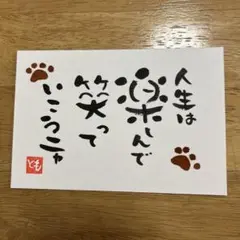 人生は
楽しんで
笑って
いこうニャ
とも